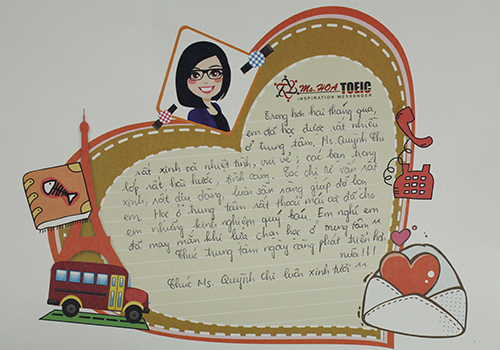 Ms.HOA TOEIC
INSPIRATION MESSENGER
Trong hơn hai tháng qua,
em đã học được rất nhiều
ở trung tâm, Ms. Quỳnh Chi
rất xinh và nhiệt tình, vui vẻ; các bạn trong
lớp rất hài hước, tình cảm. Các chị tư vấn rất
xinh, rất dịu dàng, luôn sẵn sàng giúp đỡ bọn
em. Học ở trung tâm rất thoải mái và đã cho
em những kinh nghiệm quý báu. Em nghĩ em
đã may mắn khi lựa chọn học ở trung tâm ^^
Chúc trung tâm ngày càng phát triển hơn
nữa!!!
Chúc Ms. Quỳnh Chi luôn xinh tươi ^^